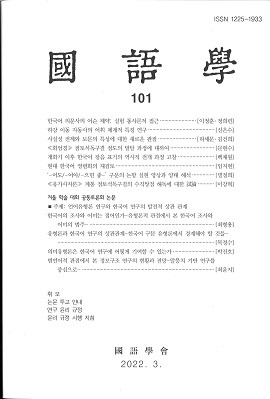 ISSN 1225-1933
國語學
101
한국어 의문사의 어순 제약: 실험 통사론적 접근 (이정훈·정희련)
하강 이동 자동사의 어휘 체계적 특성 연구 (신은수)
사실성 전제와 보문의 특성에 대한 새로운 관점 (하세문·김건희)
점토석독구결 점도의 발달 과정에 대하여 (문현수)
개화기 이후 한국어 장음 표기의 역사적 전개 과정 고찰 (백채원)
현대 한국어 결원회의 재검토 (임지현)
구문의 논항 실현 양상과 양태 해석 (명정희)
계통 점토석독구결의 수직쌍점 해독에 대한 試論 (이강혁)
겨울 학술 대회 공동토론회 논문
■ 주제: 언어유형론 연구와 한국어 연구의 발전적 상관 관계
한국어의 조사와 어미는 접어인가-유형론적 관점에서 본 한국어 조사와
어미의 범주 (최형용)
유형론과 한국어 연구의 상관관계-한국어 구문 유형론에서 경계해야 할 것들-
(목정수)
의미유형론은 한국어 연구에 어떻게 기여할 수 있는가 (박진호)
범언어적 관점에서 본 정보구조 연구의 현황과 전망-말뭉치 기반 연구를
중심으로 (최윤지)
휘보
논문 투고 안내
연구 윤리 규정
윤리 규정 시행 지침
國語學會
2022. 3.